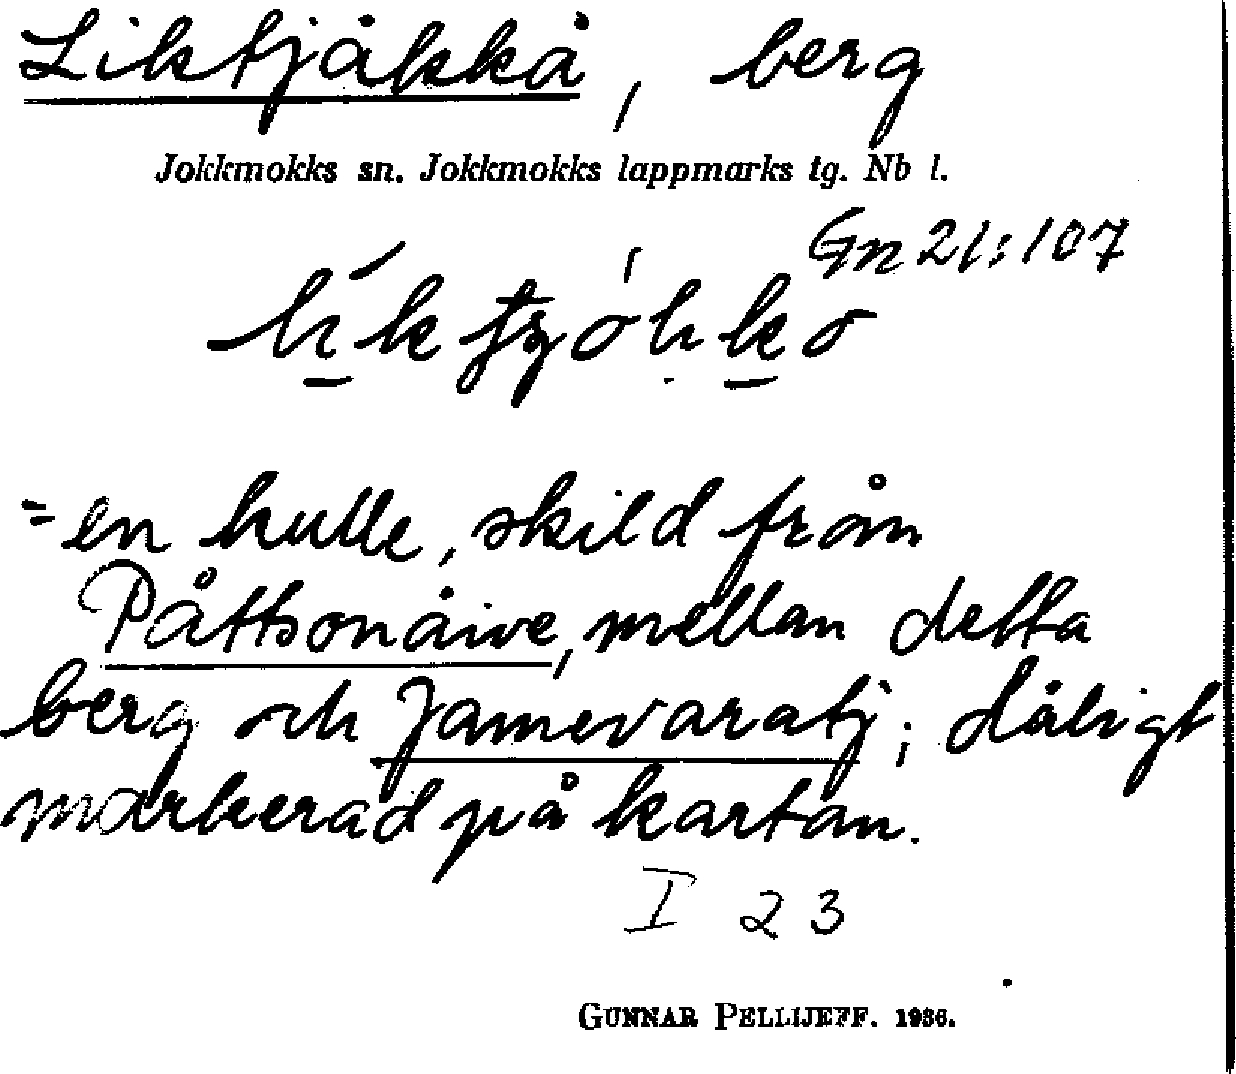 Liktjåkkå, berg
Jokkmokks sn. Jokkmokks lappmarks tg. Nb l.
Gn 21:107
= en kulle, skild från
Påttsonåive, mellan detta
berg och Jamevaratj; dåligt
markerad på kartan.
I 23
GUNNAR PELLIJEFF. 1936.